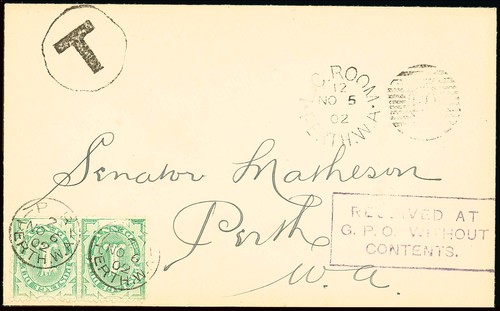 T
G. ROOM.
12
NO 5
02
PERTH.W.A.
Senator Matheson
Perth
W.a.
RECEIVED AT
G. P. O. WITHOUT
CONTENTS.
NO 6
02
PERTH.W
NO 6
02
PERTH.W